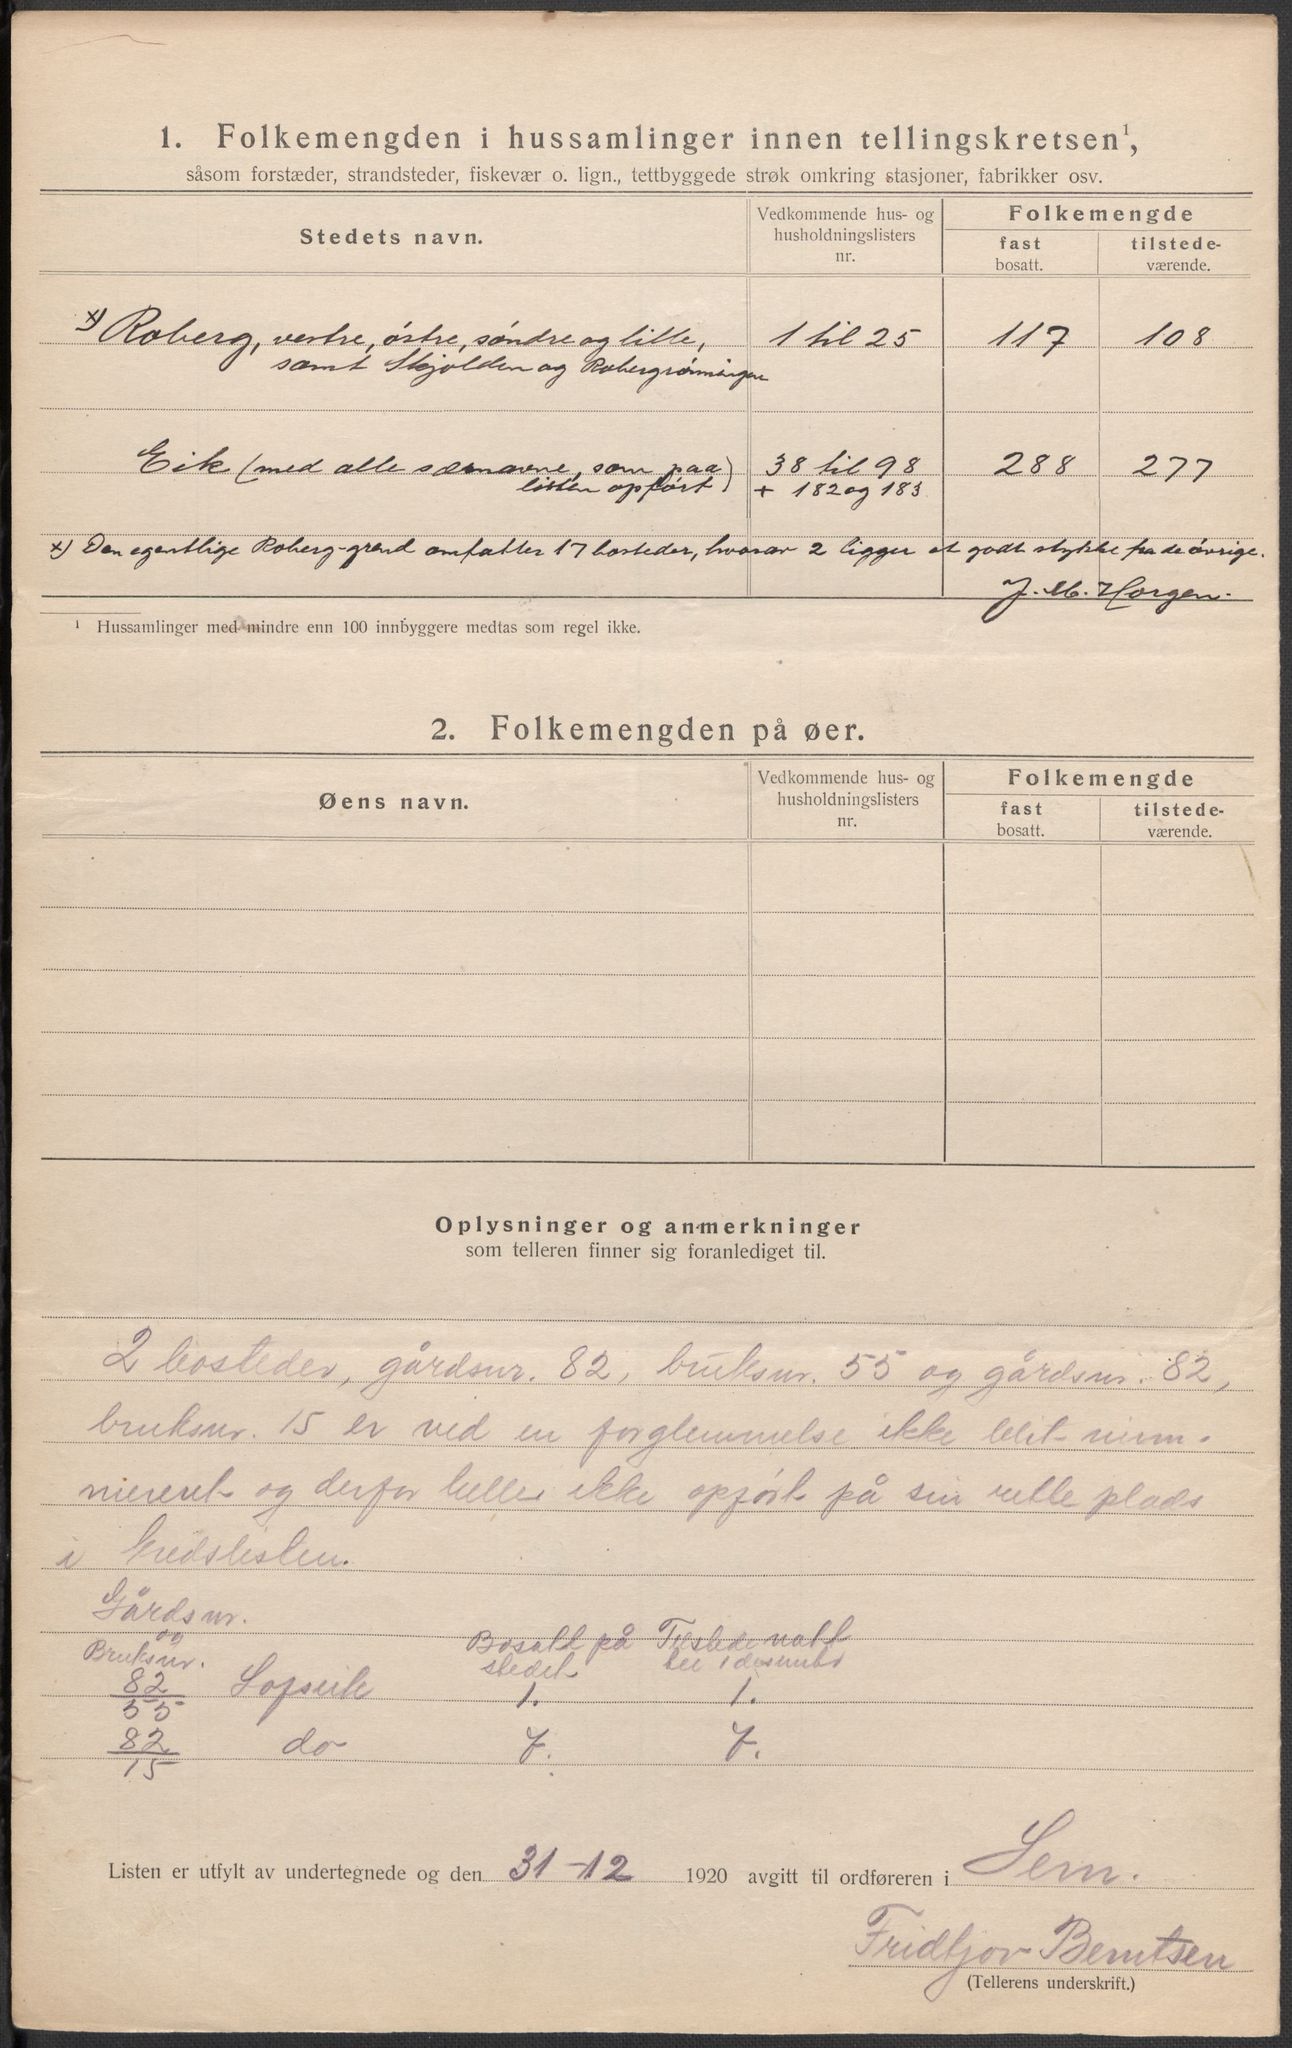 1. Folkemengden i hussamlinger innen tellingskretsen¹,
såsom forstæder, strandsteder, fiskevær o. lign., tettbyggede strøk omkring stasjoner, fabrikker osv.
Stedets navn.
Vedkommende hus- og
husholdningslisters
nr.
Folkemengde
fast
bosatt.
tilstede-
værende.
x) Roberg, vestre, østre, søndre og lille, 1 til 25 117 108
samt Skjolden og Robergrønningen
Eik (med alle særnavne, som paa 38 til 98 288 277
listen opført) + 182 og 183
x) Den egentlige Roberg-grend omfatter 17 bosteder, hvorav 2 ligger et godt stykke fra de øvrige.
J. M. Horgen.
¹ Hussamlinger med mindre enn 100 innbyggere medtas som regel ikke.
2. Folkemengden på øer.
Øens navn.
Vedkommende hus- og
husholdningslisters
nr.
Folkemengde
fast
bosatt.
tilstede-
værende.
Oplysninger og anmerkninger
som telleren finner sig foranlediget til.
2 bosteder, gårdsnr. 82, bruksnr. 55 og gårdsnr. 82,
bruksnr. 15 er ved en forglemmelse ikke blit num-
mereret og derfor heller ikke opført på sin rette plads
i kredslisten.
Gårdsnr.
og
Bruksnr.
Bosatt på
stedet
Tilstede natt
til 1 desember
82/55 Sopseik 1. 1.
82/15 do 7. 7.
Listen er utfylt av undertegnede og den 31-12 1920 avgitt til ordføreren i Sem.
Fridtjov Berntsen
(Tellerens underskrift.)